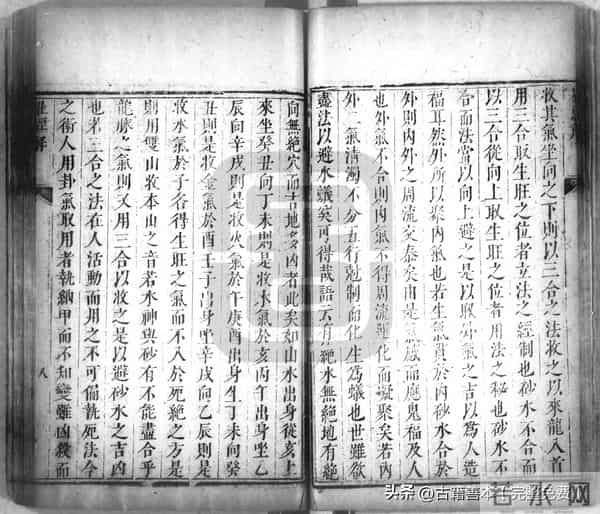 收其氣坐向之下則以三合之法收之以來龍入首
用三合取生旺之位者立法之經制也砂水不合而
以三合從向上取生旺之位者用法之秘也砂水不
合而法當以向上避之是以取外氣之吉以為人造
福耳然外所以聚內氣也若生氣貫於內砂水合於
外則內外之周流交泰矣由是氣感而應鬼福及人
也外氣不合則內氣不得周流運化而凝聚矣若內
外二氣清濁不分五行剋制而化生為蟻也世雖欲
盡法以避水蟻奚可得哉語云有絕水無絕地有絕
向無絕穴而吉地多凶者此矣如山水出身從亥上
來坐癸丑向丁未則是收木氣於亥丙午出身坐乙
辰向辛戌則是收火氣於午庚酉出身坐丁未向癸
丑則是收金氣於酉壬子出身坐辛戌向乙辰則是
收水氣於子各得生旺之氣而不入於死絕之方是
則用雙山收本山之音若水神與砂有不能盡合乎
龍脉之氣則又用三合以收之是以避砂水之吉凶
也若三合之法在人活動而用之不可偏執死法今
之術人用卦氣取用者執納甲而不知變雖凶殺而
八
头条 @古籍善本（完整免费）